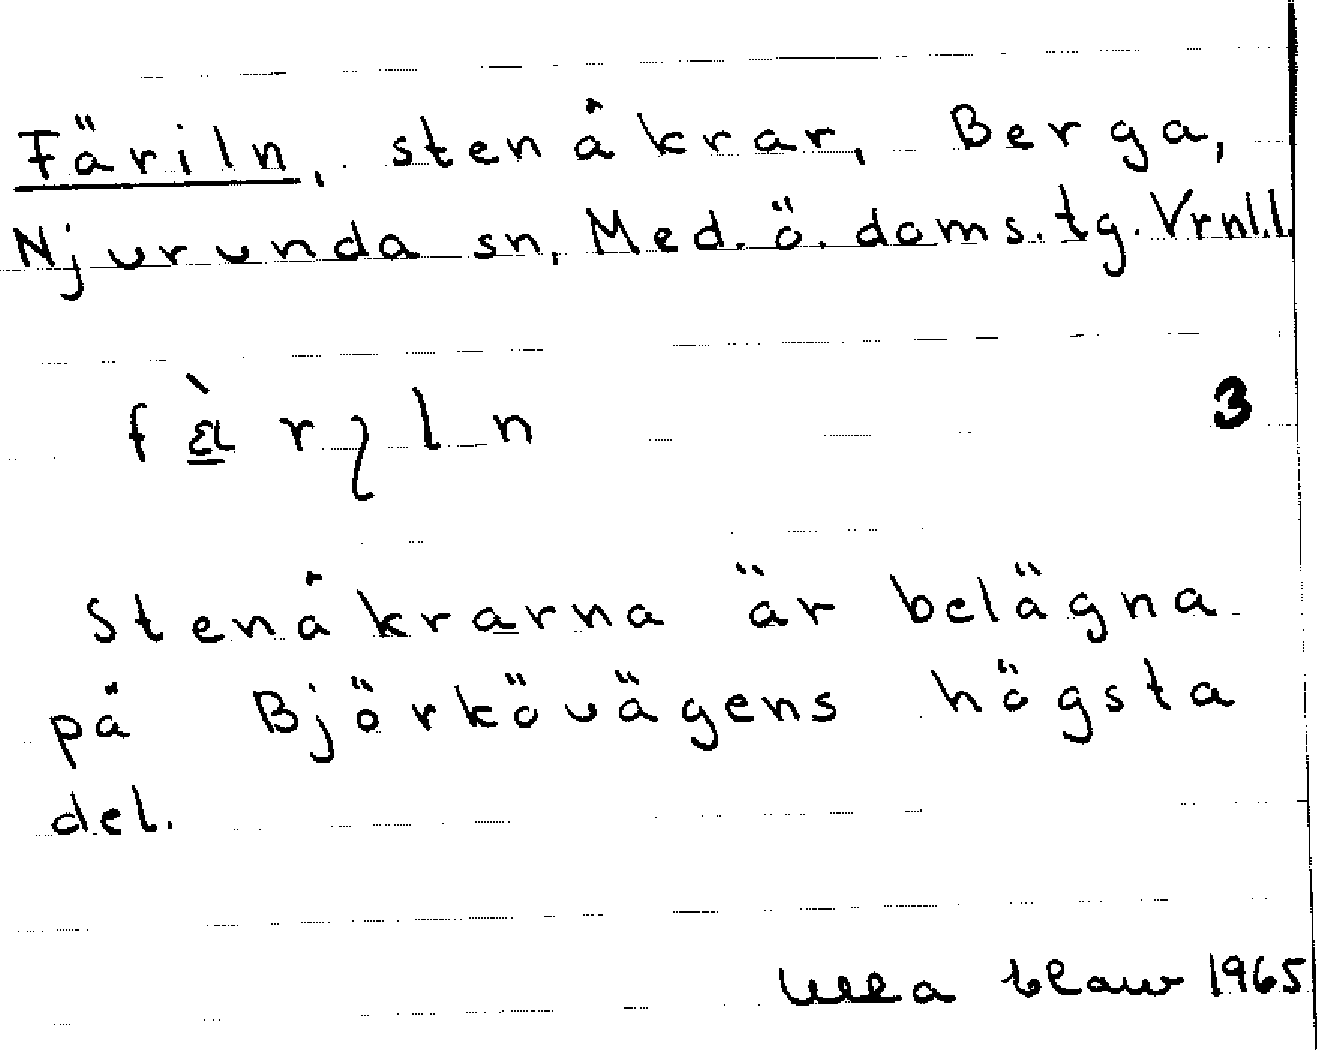 Färiln, stenåkrar, Berga,
Njurunda sn, Med. ö. doms. tg. Vrnl.l.
3
Stenåkrarna är belägna
på Björkövägens högsta
del.
Ulla 1965